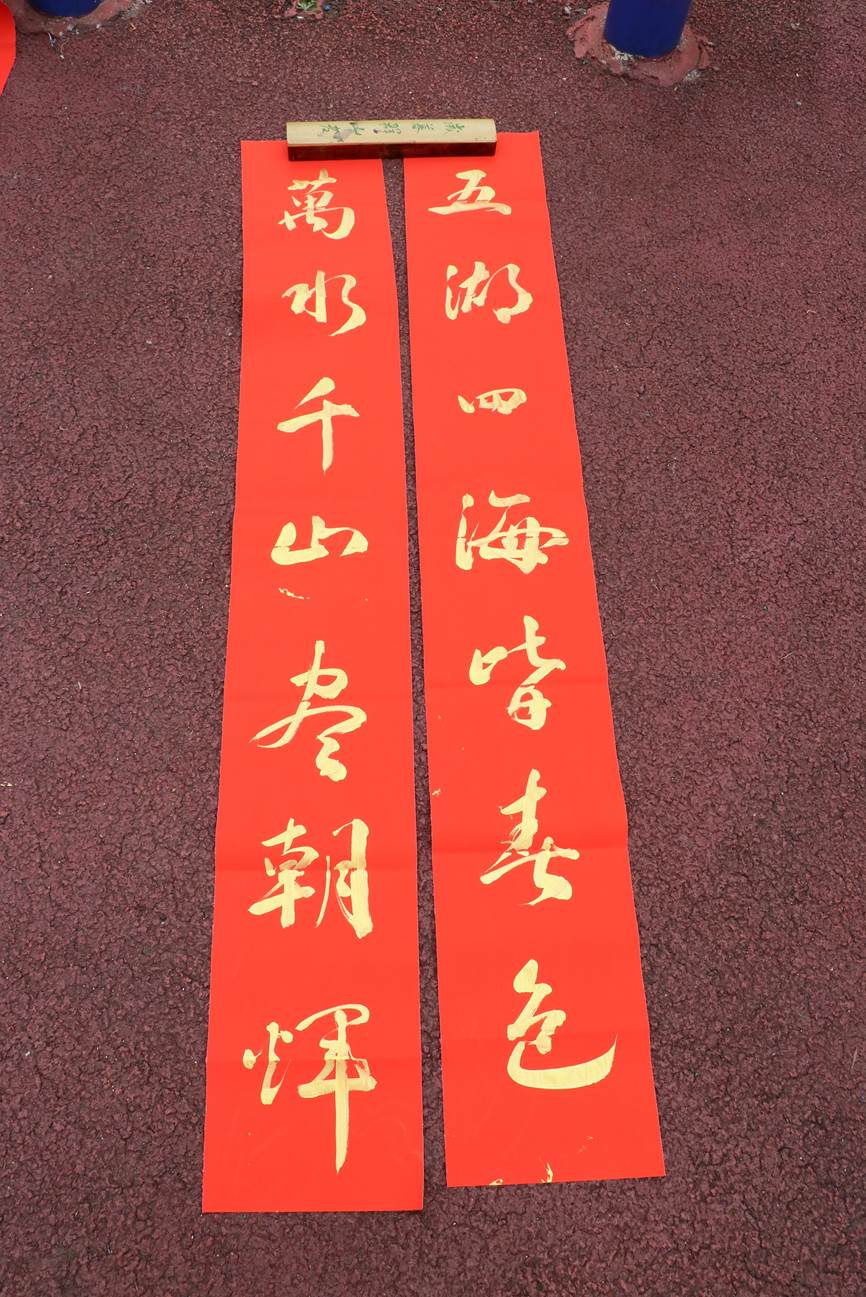 五湖四海皆春色
萬水千山尽朝煇